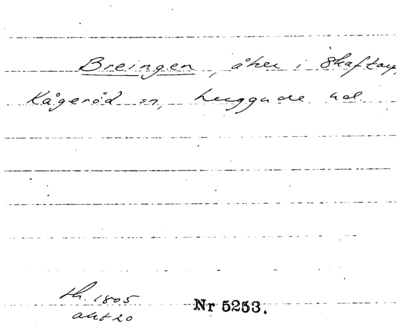 Breingen, åker i Skaftarp,
Kågeröd sn, Luggude hd.
th. 1805
akt 20
Nr 5253.